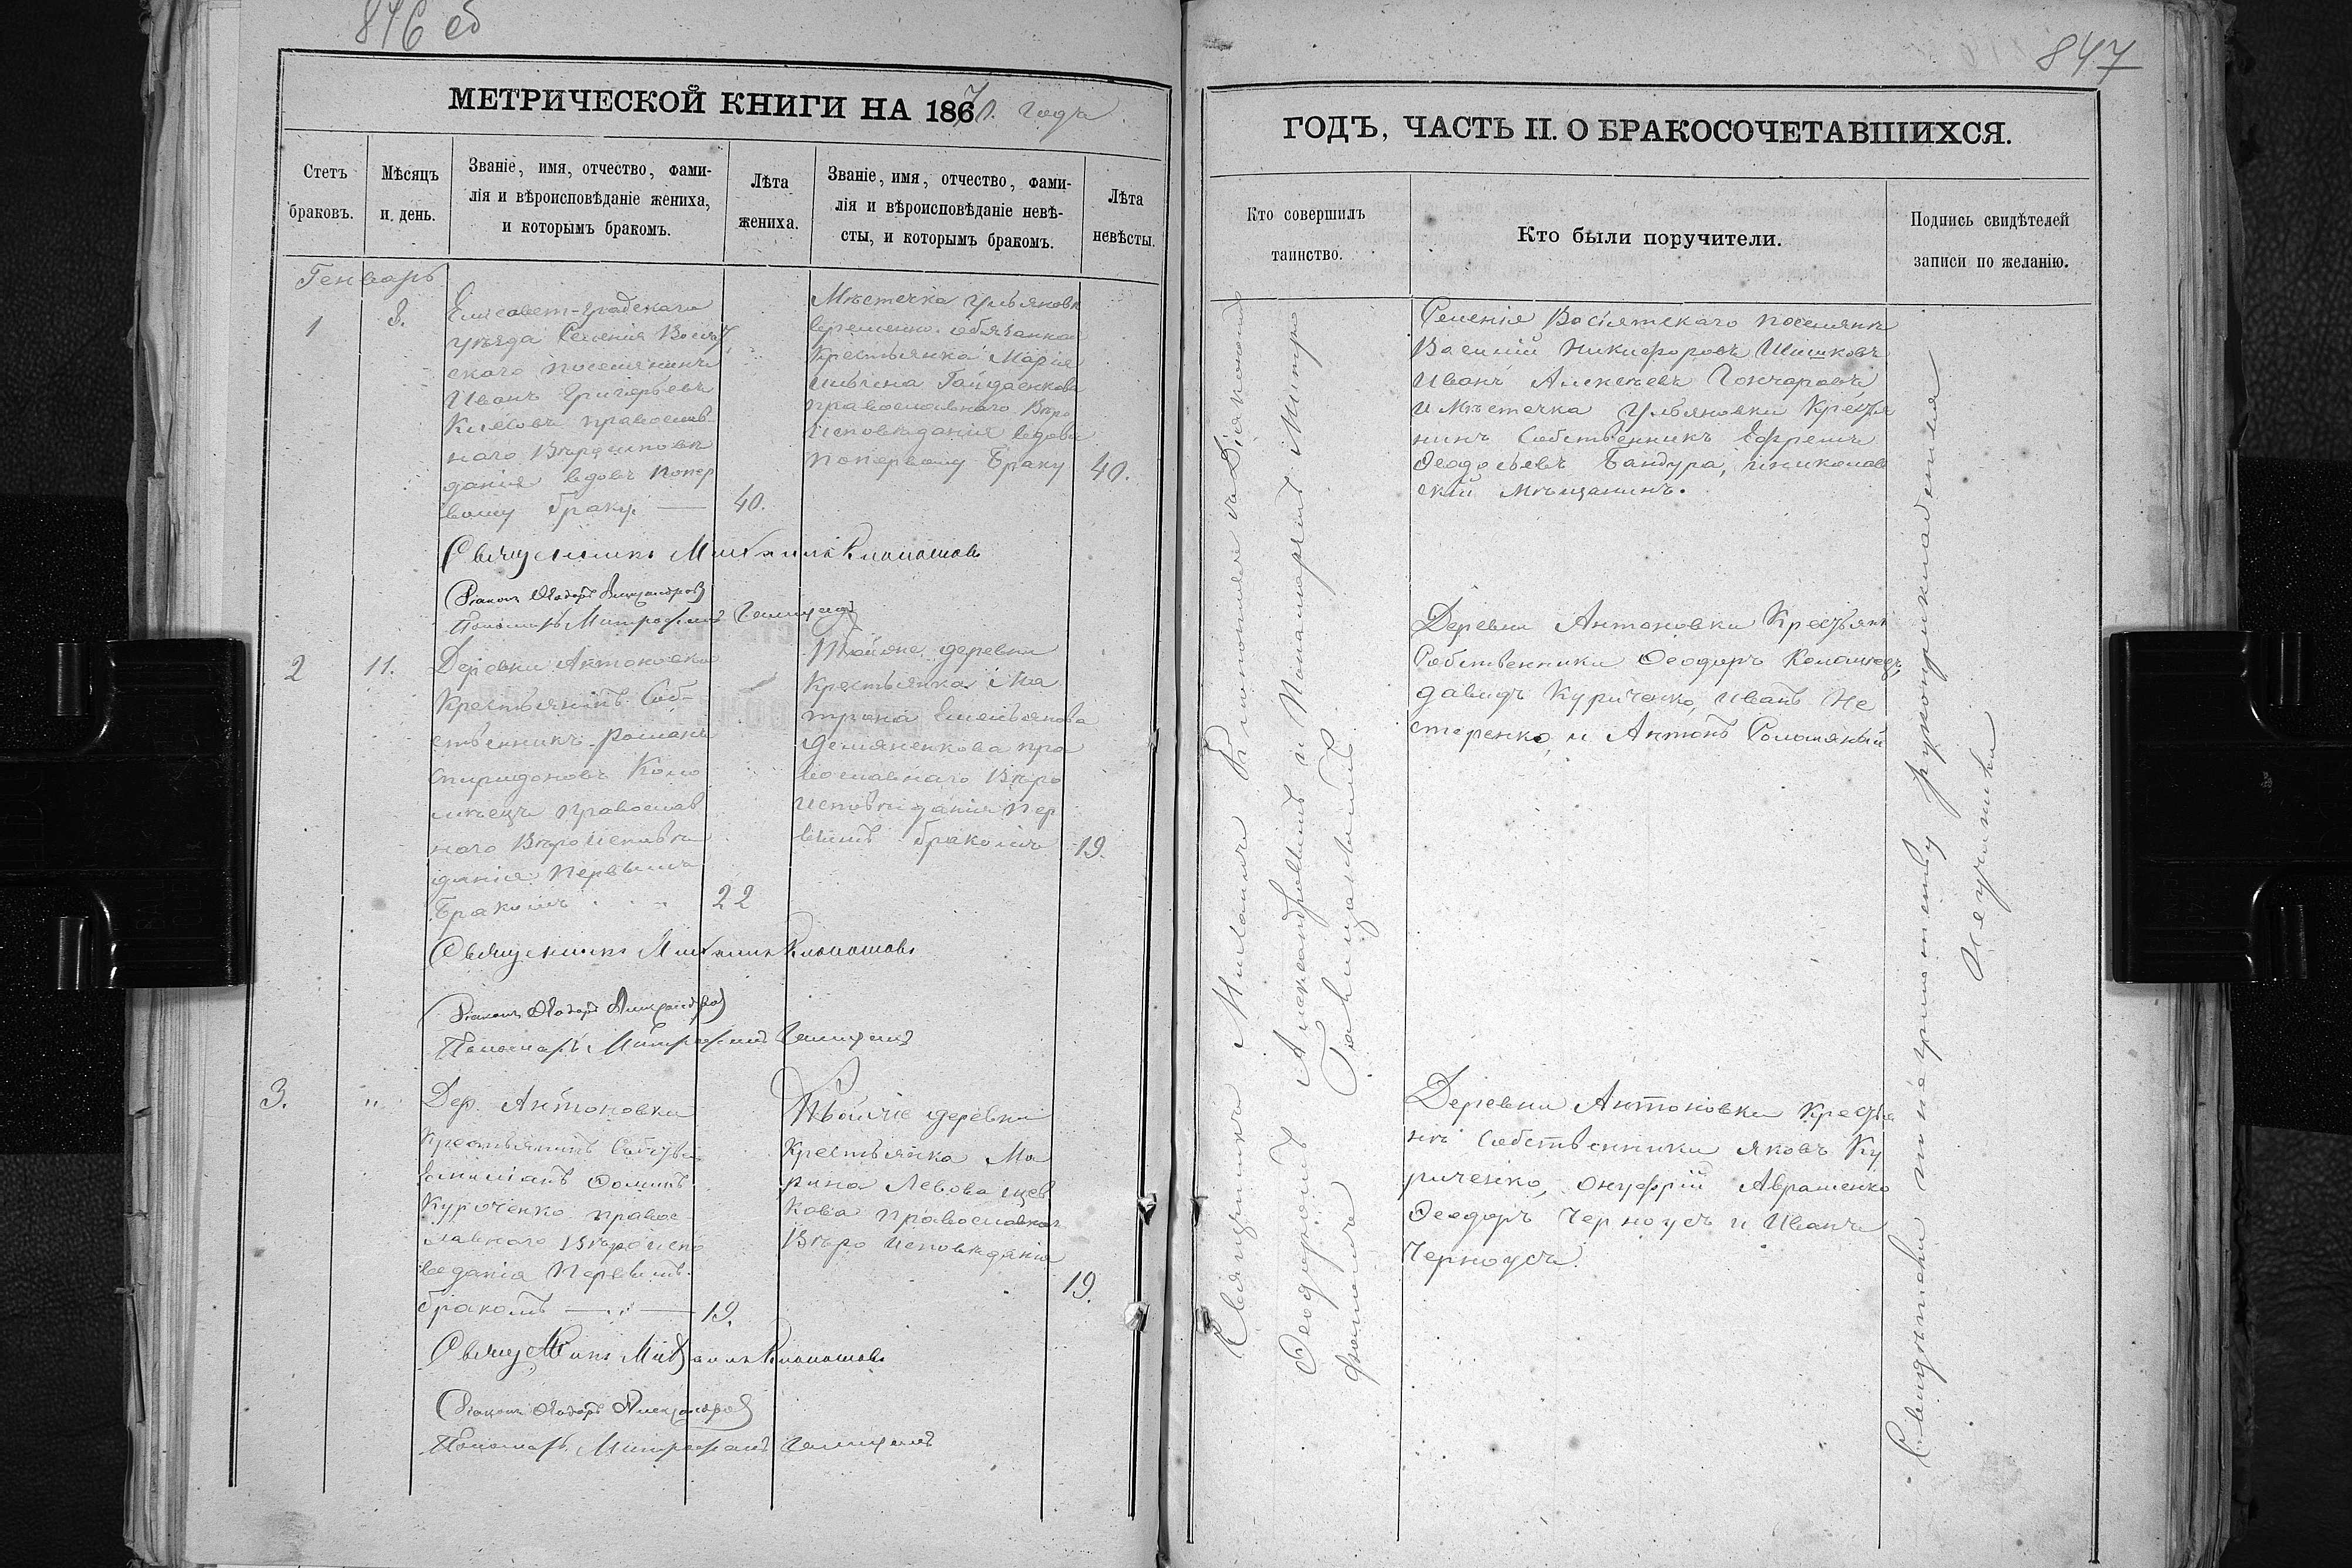 846 об
МЕТРИЧЕСКОЙ КНИГИ НА 18670. годъ
Стетъ браковъ.
Мѣсяцъ и день.
Званіе, имя, отчество, фами-
лія и вѣроисповѣданіе жениха,
и которымъ бракомъ.
Лѣта жениха.
Званіе, имя, отчество, фами-
лія и вѣроисповѣданіе невѣ-
сты, и которымъ бракомъ.
Лѣта невѣсты.
Генварь
1
8.
Елисавет-градскаго
уѣзда Селенія Восіят
скаго поселянинъ
Иванъ Григорьевъ
православ
наго Вѣроисповѣ
данія вдовъ попер
вому браку
40.
Мѣстечка Ульяновк
временно-обязанная
Крестьянка Марія
Гайдаенкова
православнаго Вѣро
исповѣданія вдова
попервому браку
40.
Священникъ Михаилъ Клопотовъ
Діаконъ Ѳеодоръ Александровъ
Пономарь Митрофанъ
2
11.
Деревни Антоновки
Крестьянинъ Соб-
ственникъ Романъ
Спиридоновъ Коло
мѣецъ православ
наго Вѣроисповѣ
данія Первымъ
бракомъ
22
Тойже деревни
Крестьянка Ма
трона Емельянова
Демяненкова пра
вославнаго Вѣро
исповѣданія пер
вымъ бракомъ
19.
Священникъ Михаилъ Клопотовъ
Діаконъ Ѳеодоръ Александровъ
Пономарь Митрофанъ
3.
"
Дер. Антоновки
Крестьянинъ Собств
Ѳоминъ
Куроченко правос
лавнаго Вѣроиспо
веданія Первымъ
бракомъ
19.
деревни
Крестьянка Ма
рина Левова
кова православнаго
Вѣро исповѣданія
19.
Священникъ Михаилъ Клопотовъ
Діаконъ Ѳеодоръ Александровъ
Пономарь Митрофанъ
847
ГОДЪ, ЧАСТЬ II. О БРАКОСОЧЕТАВШИХСЯ.
Кто совершилъ таинство.
Кто были поручители.
Подпись свидѣтелей записи по желанію.
Священникъ Михаилъ Клопотовъ съ Діакономъ
Ѳеодоромъ Александровымъ и Пономаремъ Митро
фаномъ
Селенія Восіятскаго поселяне
Василій Никифоровъ Шишковъ
Иванъ Алексѣевъ Гончаровъ
и Мѣстечка Ульяновки Крестья
нинъ Собственникъ Ефремъ
Ѳеодосьевъ Бандура, и николаев
скій мѣщанинъ.
Деревни Антоновки Крестьян
Собственники Ѳеодоръ Коломѣецъ,
давидъ Куриченко, Иванъ Не
стеренко, и Антонъ
Деревни Антоновки Крестья
не Собственники Яковъ Ку
риченко, Онуфрій Авраменко
Ѳеодоръ Черноусъ и Иванъ
Черноусъ.
Свидѣтели по неграмотству рукоприкладствія